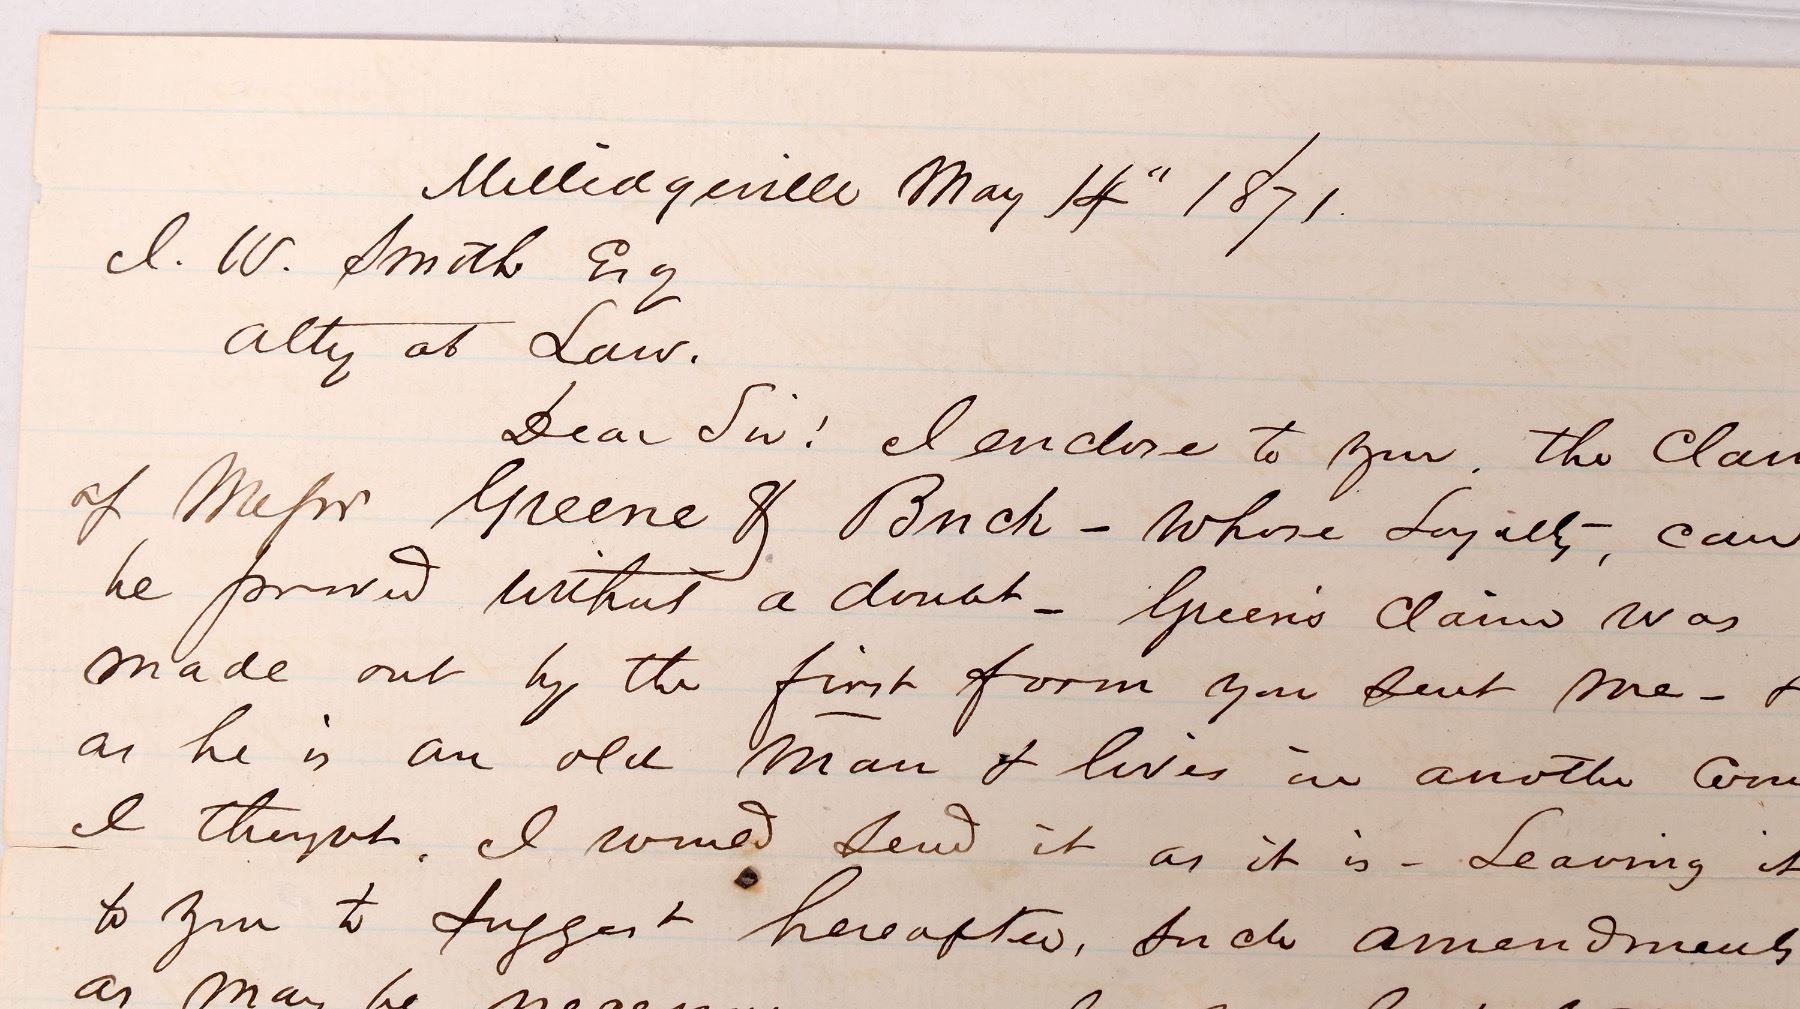 Milledgeville May 14" 1871.
I. W. Smith Esq
Atty at Law.
Dear Sir! I enclose to you, the
of Messrs Greene & Buck - whose Loyalty, can
be proved without a doubt - Green's claim was
made out by the first form you sent me - &
as he is an old man & lives in another
I thought, I would send it as it is - Leaving it
to you to suggest hereafter, such amendments
as may be